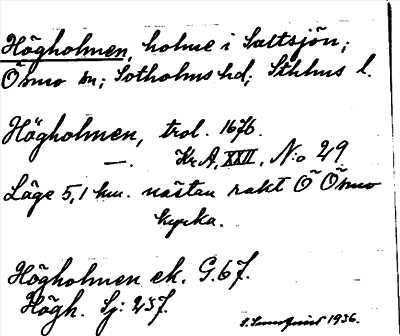 Högholmen, holme i Saltsjön;
Ösmo sn; Sotholms hd; Sthlms l.
Högholmen, trol. 1676.
—. Kr.A, XXII, N:o 29.
Läge 5,1 km. nästan rakt Ö Ösmo
kyrka.
Högholmen ek. G.67.
Högh. Sj: 237.
1936.